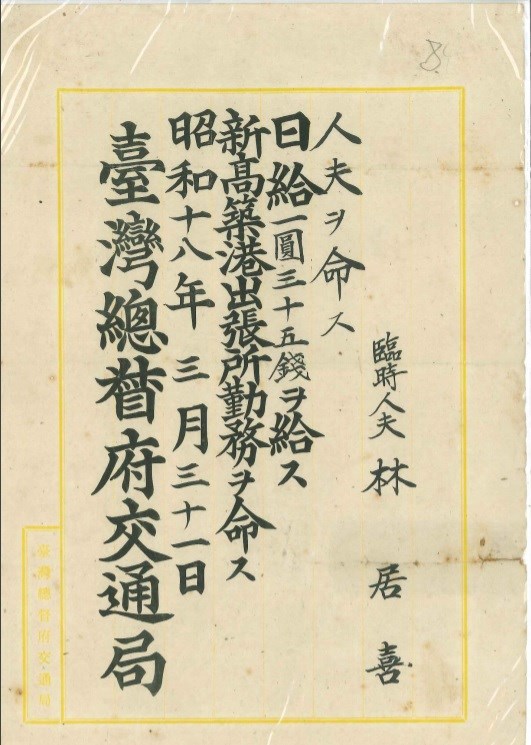 8
臨時人夫 林 居 喜
人夫ヲ命ス
日給一圓三十五錢ヲ給ス
新高築港出張所勤務ヲ命ス
昭和十八年 三月三十一日
臺灣總督府交通局
臺灣總督府交通局